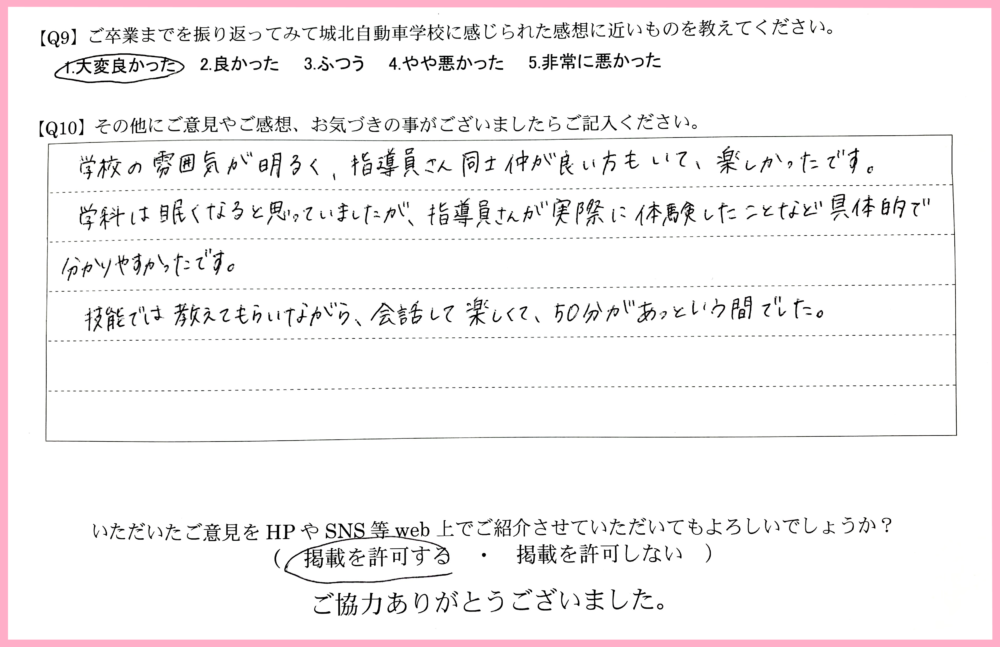 【Q9】ご卒業までを振り返ってみて城北自動車学校に感じられた感想に近いものを教えてください。
1.大変良かった 2.良かった 3.ふつう 4.やや悪かった 5.非常に悪かった
【Q10】その他にご意見やご感想、お気づきの事がございましたらご記入ください。
学校の雰囲気が明るく、指導員さん同士仲が良い方もいて、楽しかったです。
学科は眠くなると思っていましたが、指導員さんが実際に体験したことなど具体的で
分かりやすかったです。
技能では教えてもらいながら、会話して楽しくて、50分があっという間でした。
いただいたご意見をHPやSNS等web上でご紹介させていただいてもよろしいでしょうか？
（ 掲載を許可する ・ 掲載を許可しない ）
ご協力ありがとうございました。